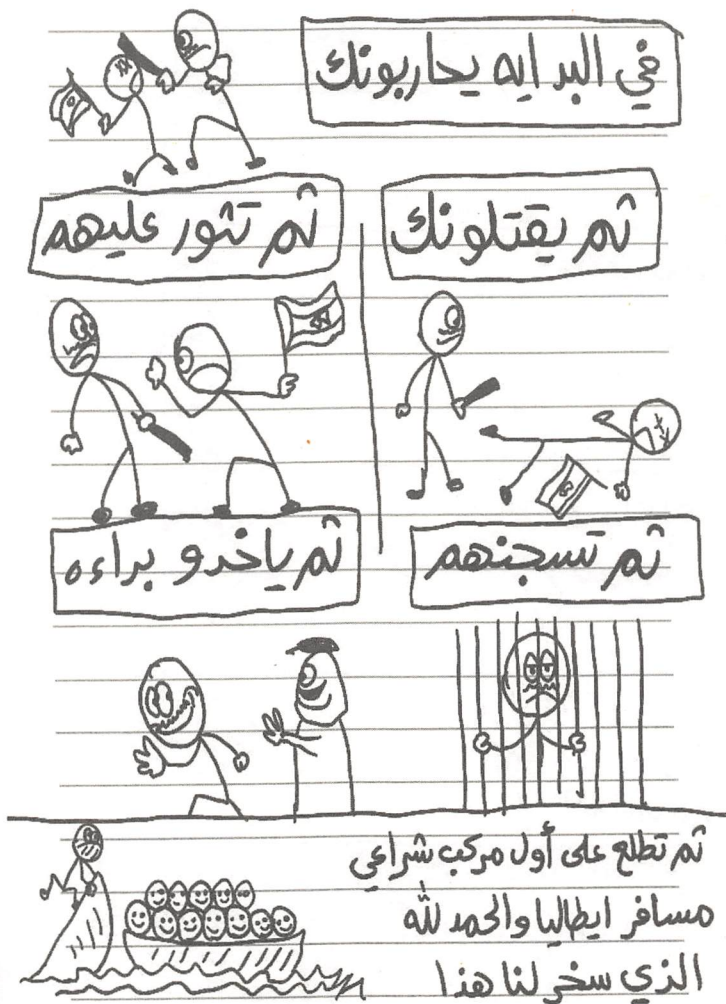 في البدايه يحاربونك
ثم يقتلونك
ثم تثور عليهم
ثم تسجنهم
ثم ياخدو براءه
ثم تطلع على أول مركب شراعي
مسافر ايطاليا والحمد لله
الذي سخر لنا هذا